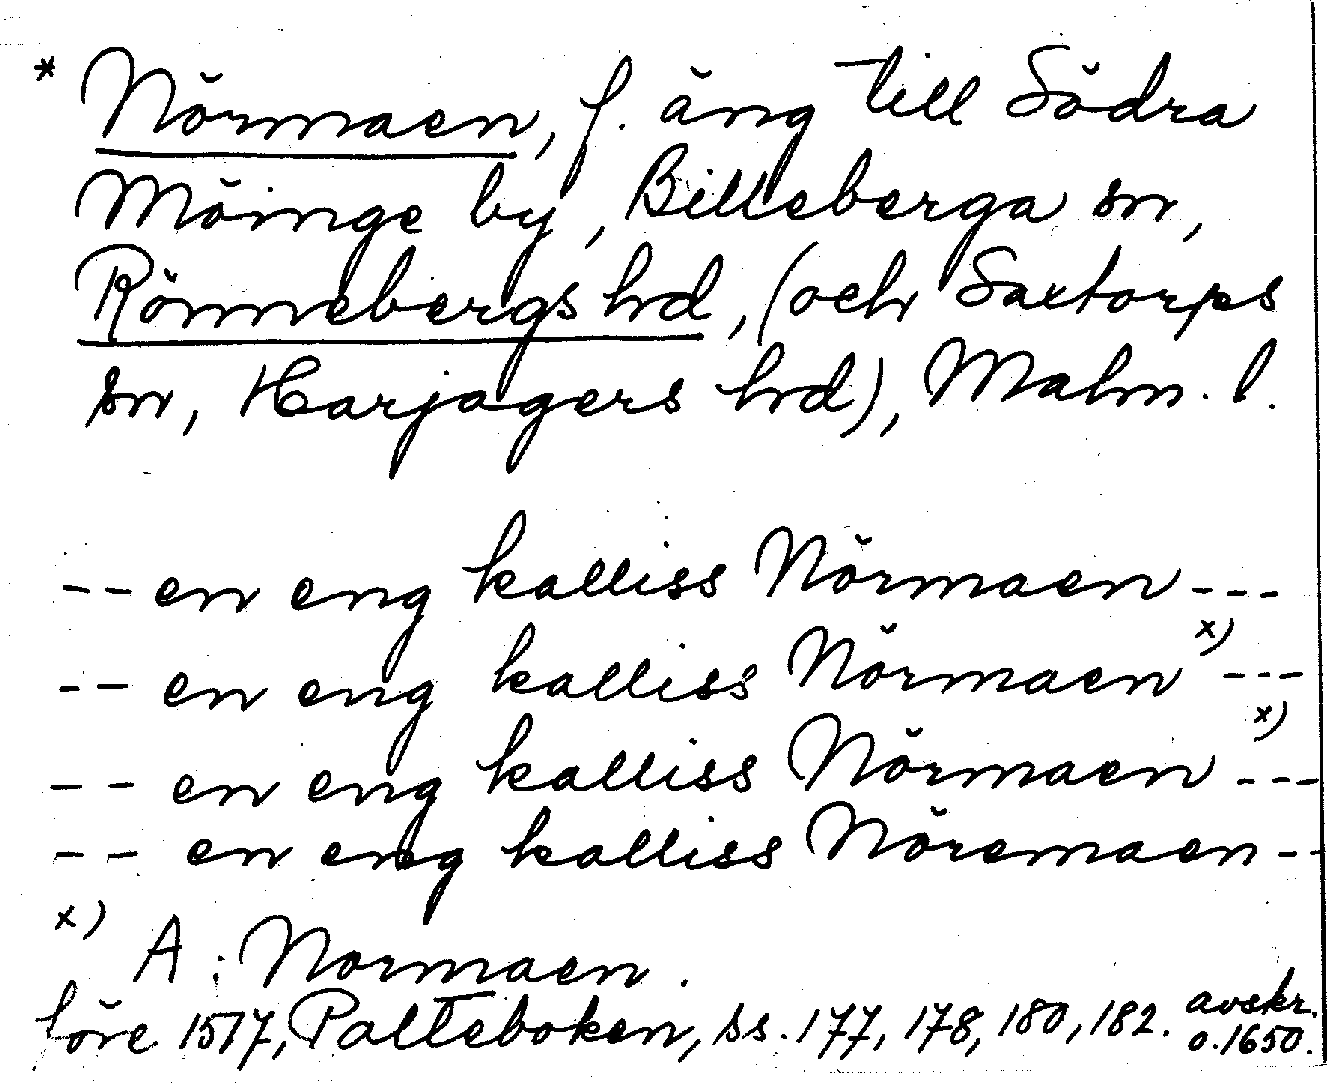 * Nörmaen, f. äng till Södra
Möinge by, Billeberga sn,
Rönnebergs hd, (och Saxtorps
sn, Harjagers hd), Malm. l.
-- en eng kalliss Nörmaen ---
-- en eng kalliss Nörmaen x) ---
-- en eng kalliss Nörmaen x) ---
-- en eng kalliss Nöremaen --
x) A: Normaen.
före 1517, Palteboken, ss. 177, 178, 180, 182. avskr. o. 1650.